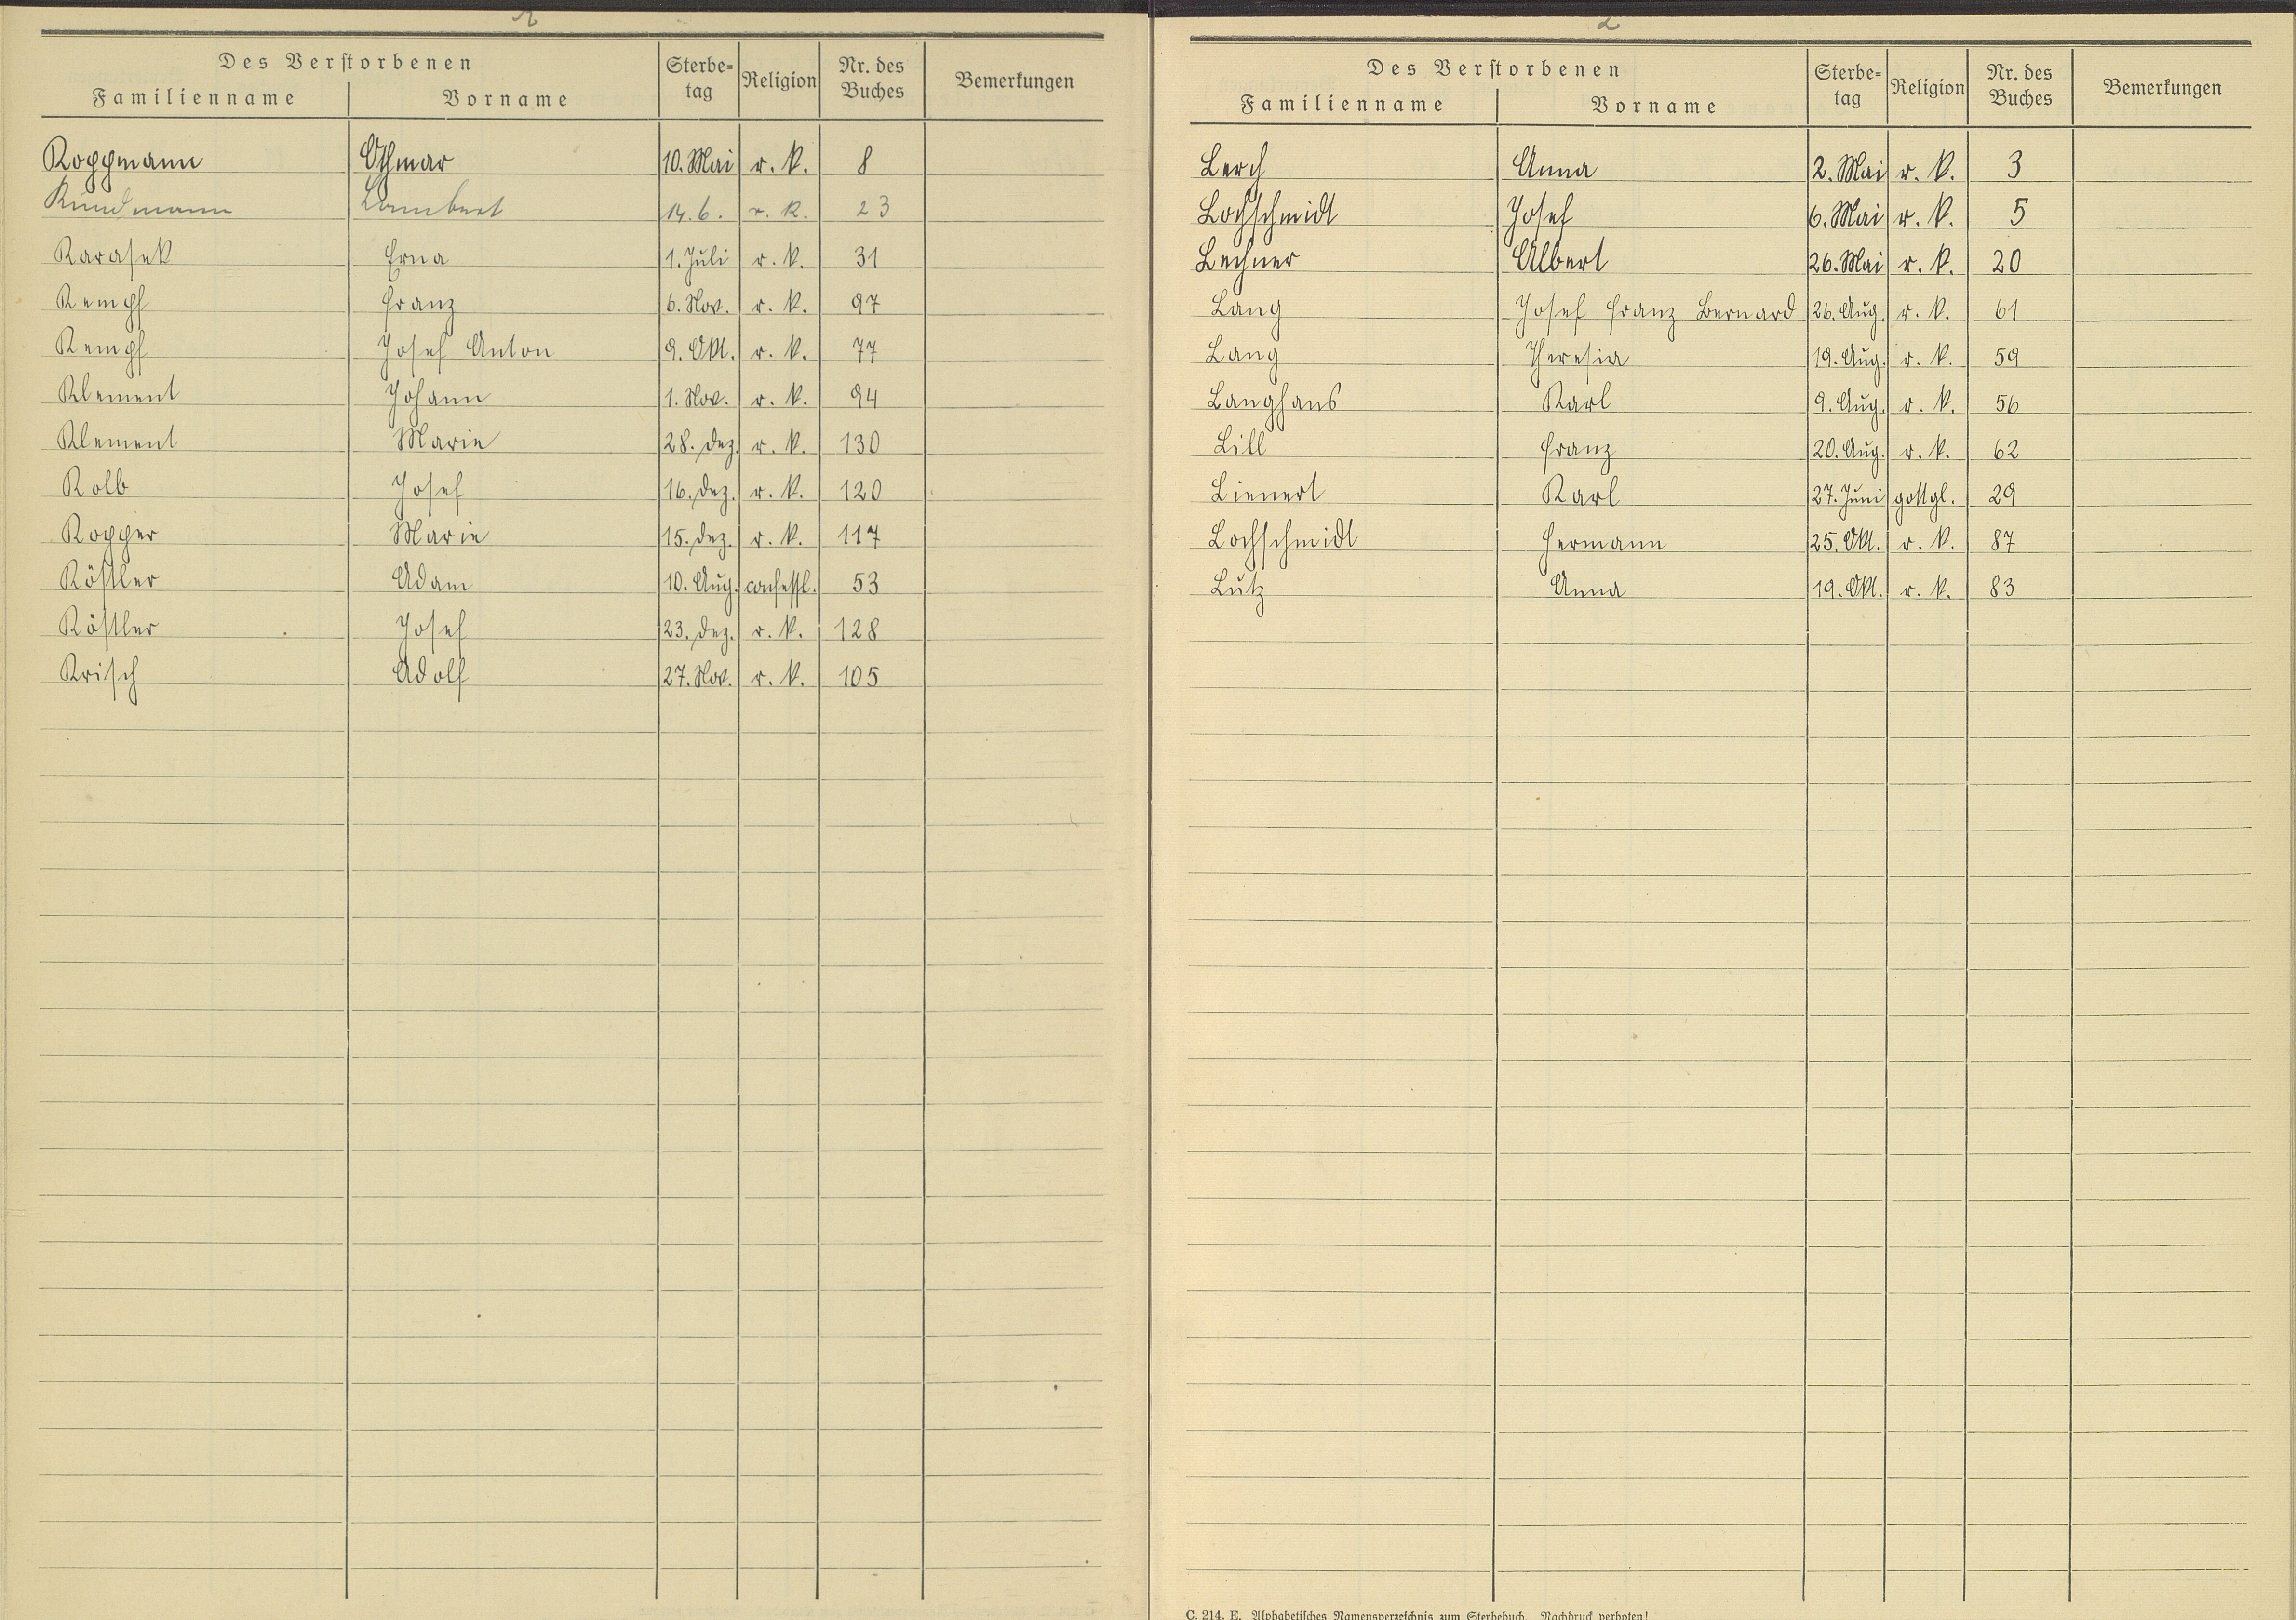 Des Verstorbenen
Familienname Vorname Sterbe=tag Religion Nr. des Buches Bemerkungen
Koppmann Othmar 10. Mai r. k. 8
Kundmann Lambert 14. 6. r. k. 23
Karasek Erna 1. Juli r. k. 31
Kempf Franz 6. Nov. r. k. 97
Kempf Josef Anton 9. Okt. r. k. 77
Klement Johann 1. Nov. r. k. 94
Klement Marie 28. Dez. r. k. 130
Kolb Josef 16. Dez. r. k. 120
Kopper Marie 15. Dez. r. k. 117
Köstler Adam 10. Aug. confessl. 53
Köstler Josef 23. Dez. r. k. 128
Krisch Adolf 27. Nov. r. k. 105
Des Verstorbenen
Familienname Vorname Sterbe=tag Religion Nr. des Buches Bemerkungen
Lerch Anna 2. Mai r. k. 3
Lochschmidt Josef 6. Mai r. k. 5
Lechner Albert 26. Mai r. k. 20
Lang Josef Franz Bernard 26. Aug. r. k. 61
Lang Theresia 19. Aug. r. k. 59
Langhans Karl 9. Aug. r. k. 56
Lill Franz 20. Aug. r. k. 62
Lienert Karl 27. Juni gottgl. 29
Lochschmidt Hermann 25. Okt. r. k. 87
Lutz Anna 19. Okt. r. k. 83
C. 214. E. Alphabetisches Namensverzeichnis zum Sterbebuch. Nachdruck verboten!